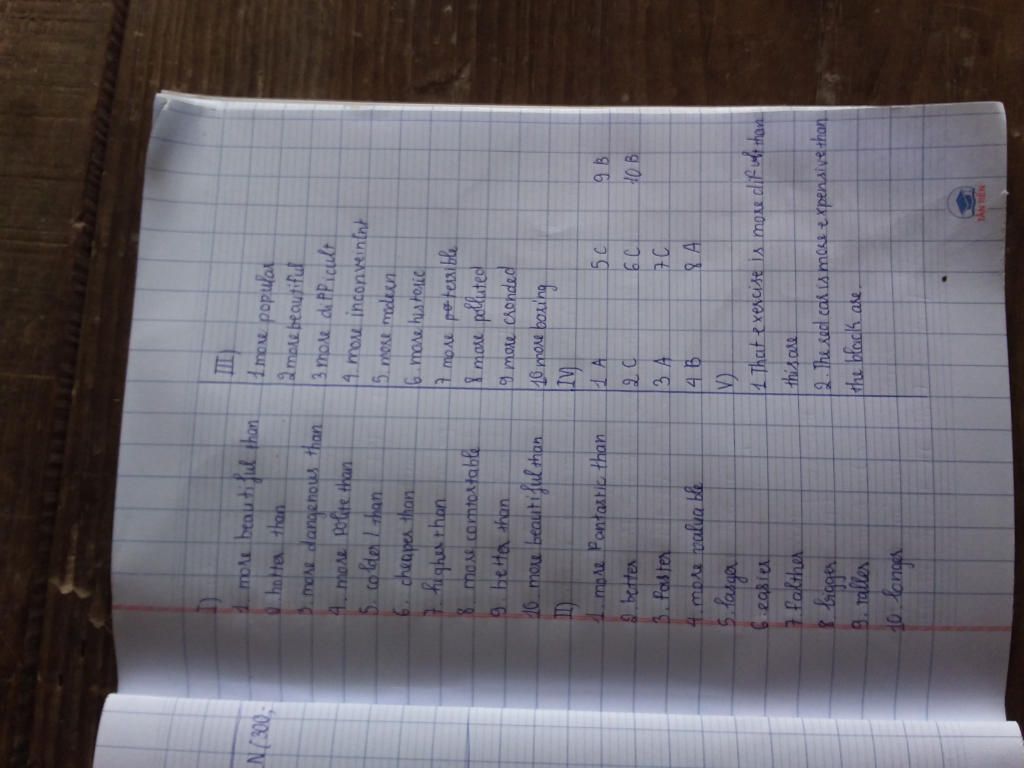 I)
1. more beautiful than
2 hotter than
3 more dangenous than
4. more polite than
5. colder / than
6. cheaper than
7. higher than
8. more comfortable
9. better than
10. more beautiful than
II)
1. more Pantastic than
2. better
3. Faster
4. more valuable
5. larger
6. easier
7 Farther
8 bigger
9. taller
10. longer
III)
1 more popular
2 more beautiful
3 more difficult
4. more inconveinint
5. more modern
6. more historic
7 more terrible
8 more polluted
9 more cronded
10 more boring
IV)
1 A 5 C 9 B
2 C 6 C 10 B
3 A 7 C
4 B 8 A
V)
1. That exercise is more than
this are
2. The red car is more expensive than
the black are.
TÂN TIẾN
N (300;